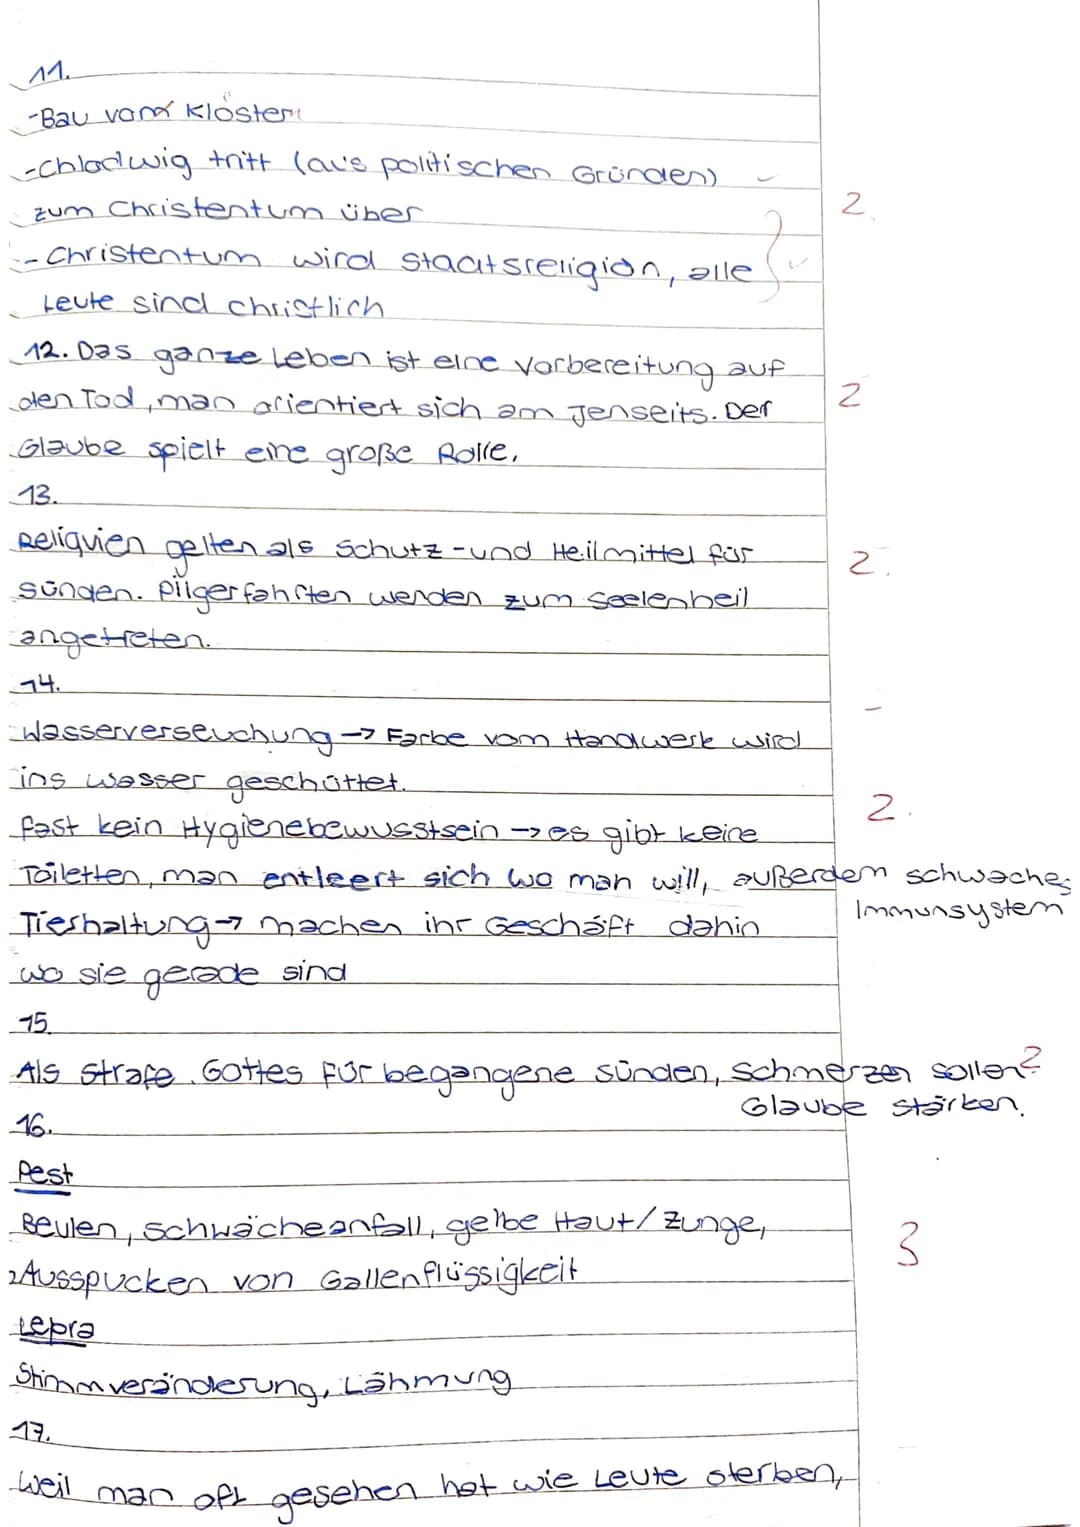 11.
-Bau von Klöstern
-Chlodwig tritt (aus politischen Gründen)
zum Christentum über
2.
- Christentum wird Staatsreligion, alle
Leute sind christlich
12. Das ganze Leben ist eine Vorbereitung auf
den Tod, man orientiert sich am Jenseits. Der
2
Glaube spielt eine große Rolle.
13.
Reliquien gelten als Schutz-und Heilmittel für
2.
Sünden. Pilgerfahrten werden zum Seelenheil
angetreten.
14.
Wasserverseuchung → Farbe vom Handwerk wird
ins Wasser geschüttet.
2.
fast kein Hygienebewusstsein → es gibt keine
Toiletten, man entleert sich wo man will, außerdem schwaches
Immunsystem
Tieshaltung → machen ihr Geschäft dahin
wo sie gerade sind
15.
Als Strafe Gottes für begangene Sünden, Schmerzen sollen
2
Glaube stärken.
16.
Pest
Beulen, Schwächeanfall, gelbe Haut/Zunge,
3
Ausspucken von Gallenflüssigkeit
Lepra
Stimmveränderung, Lähmung
17.
Weil man oft gesehen hat wie Leute sterben,